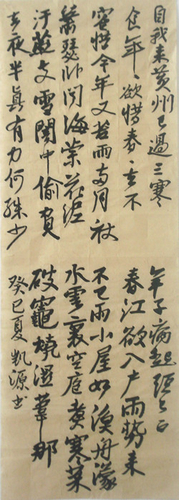 自我来黄州已過三寒
食年〻欲惜春〻去不
容惜今年又苦雨两月秋
蕭瑟卧闻海棠花泥
汙燕支雪闇中偷負
去夜半真有力何殊少
年子病起頭已白
春江欲入户雨勢来
不已雨小屋如漁舟濛
水雲裏空庖煮寒菜
破竈燒濕葦那
癸巳夏凯源书